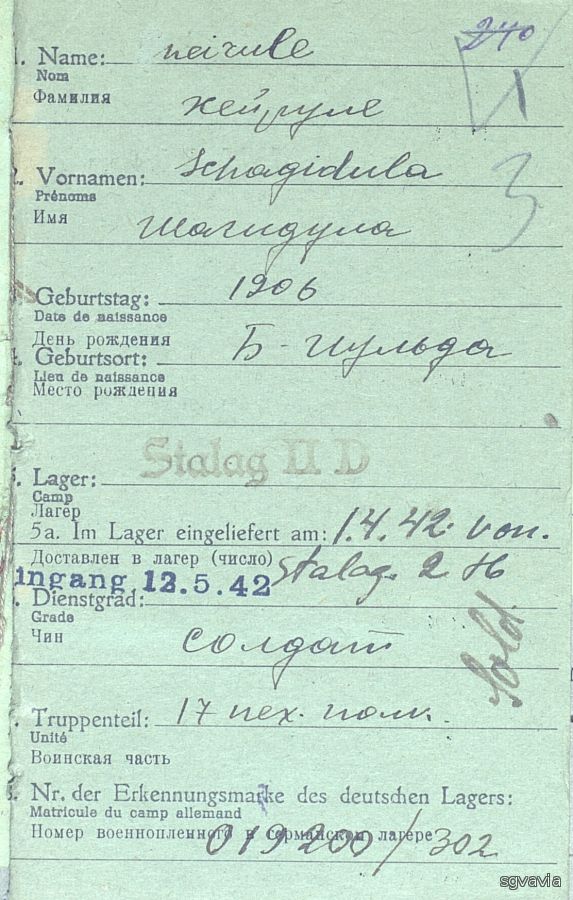 240
1
1. Name: neirule
Nom
Фамилия Хейруле
3
2. Vornamen: Schagidula
Prénoms
Имя Шагидула
Geburtstag: 1906
Date de naissance
День рождения
Geburtsort: Б-Шульда
Lieu de naissance
Место рождения
Stalag II D
5. Lager:
Camp
Лагерь
5a. Im Lager eingeliefert am: 1.4.42. von.
Доставлен в лагерь (число) Stalag. 2 H
ingang 12.5.42
Dienstgrad:
Grade
Чин солдат
Sold.
Truppenteil: 17 пех. полк.
Unité
Воинская часть
Nr. der Erkennungsmarke des deutschen Lagers:
Matricule du camp allemand
Номер военнопленного в германском лагере
019200/302
sgvavia